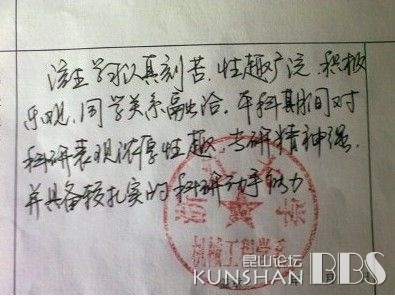 该生学习认真刻苦，性趣广泛，积极
乐观，同学关系融洽。本科期间对
科研表现浓厚性趣，专研精神强，
并具备较扎实的科研动手能力
浙
学
机械工程学系
昆山论坛
KUNSHAN BBS